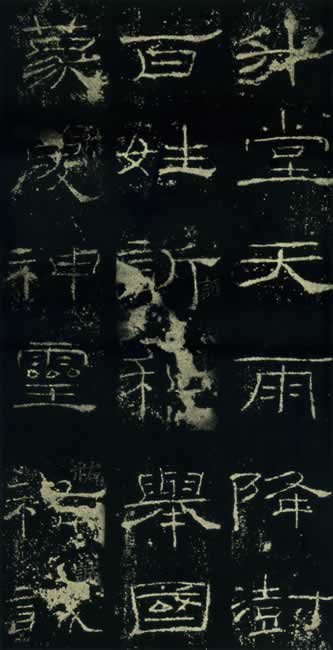 升堂天雨降澍
百姓訢和舉國
蒙慶神靈祐誠